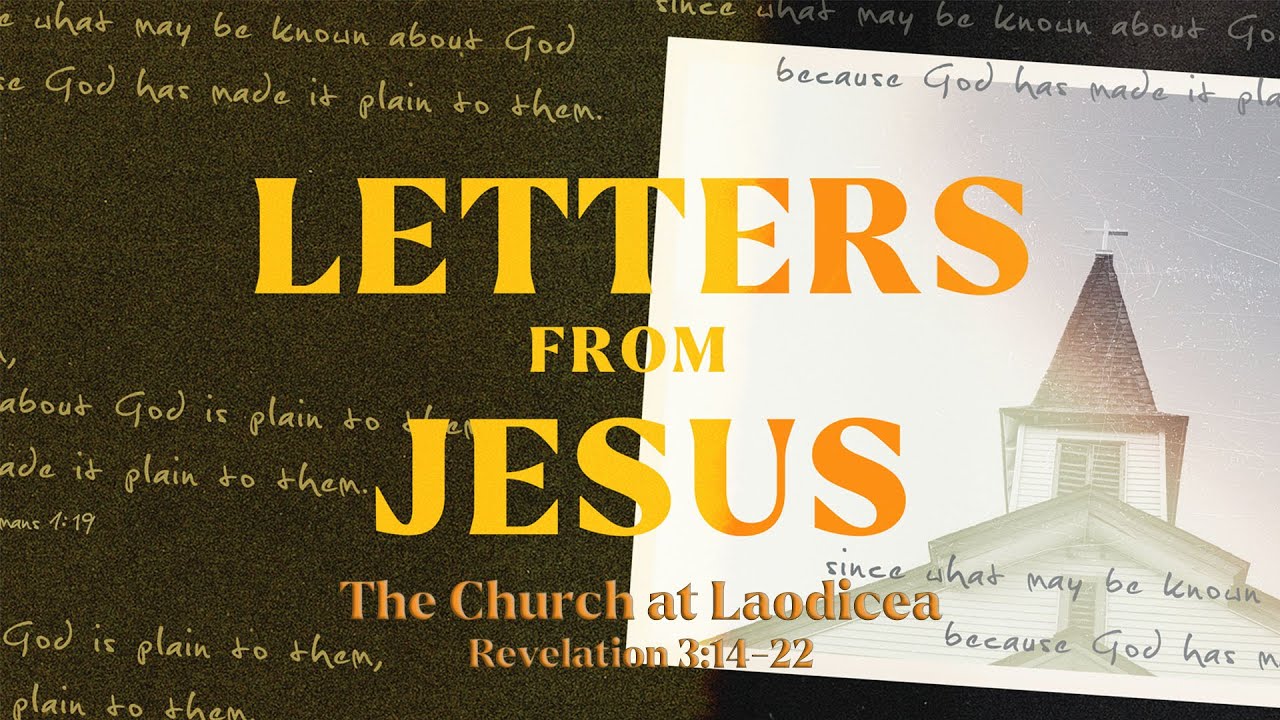 e what may be known about God
se God has made it plain to them.
since what may be known about Go
because God has made it pla
LETTERS
FROM
JESUS
about God is plain to them
ade it plain to them.
mans 1:19
The Church at Laodicea
Revelation 3:14–22
God is plain to them,
plain to them.
since what may be known
because God has m